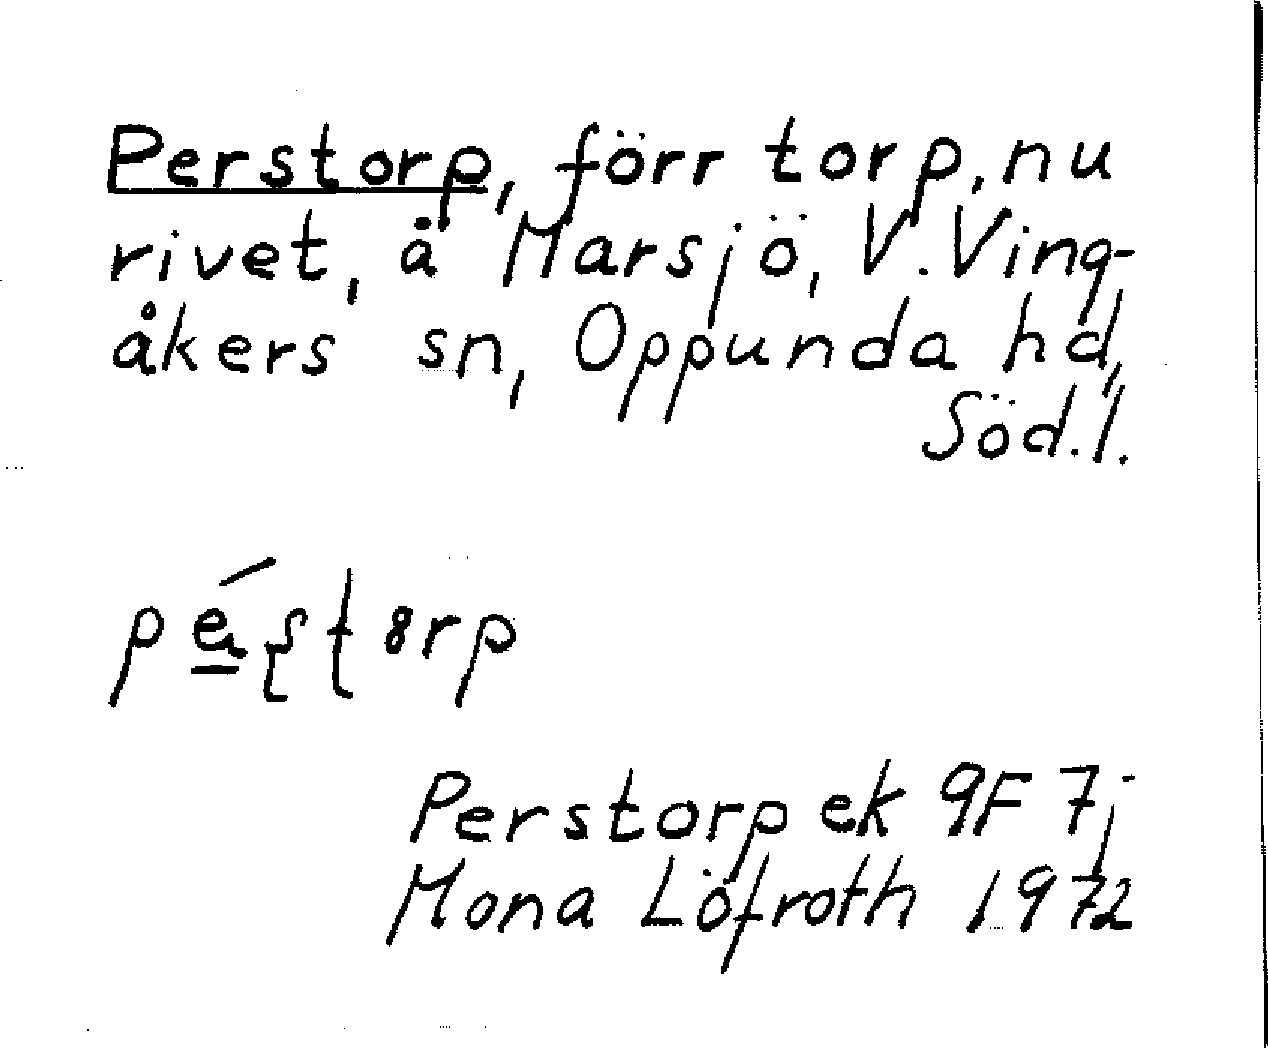 Perstorp, förr torp, nu
rivet, å Marsjö, V. Ving-
åkers sn, Oppunda hd,
Söd.l.
Perstorp ek 9F 7j
Mona Löfroth 1972